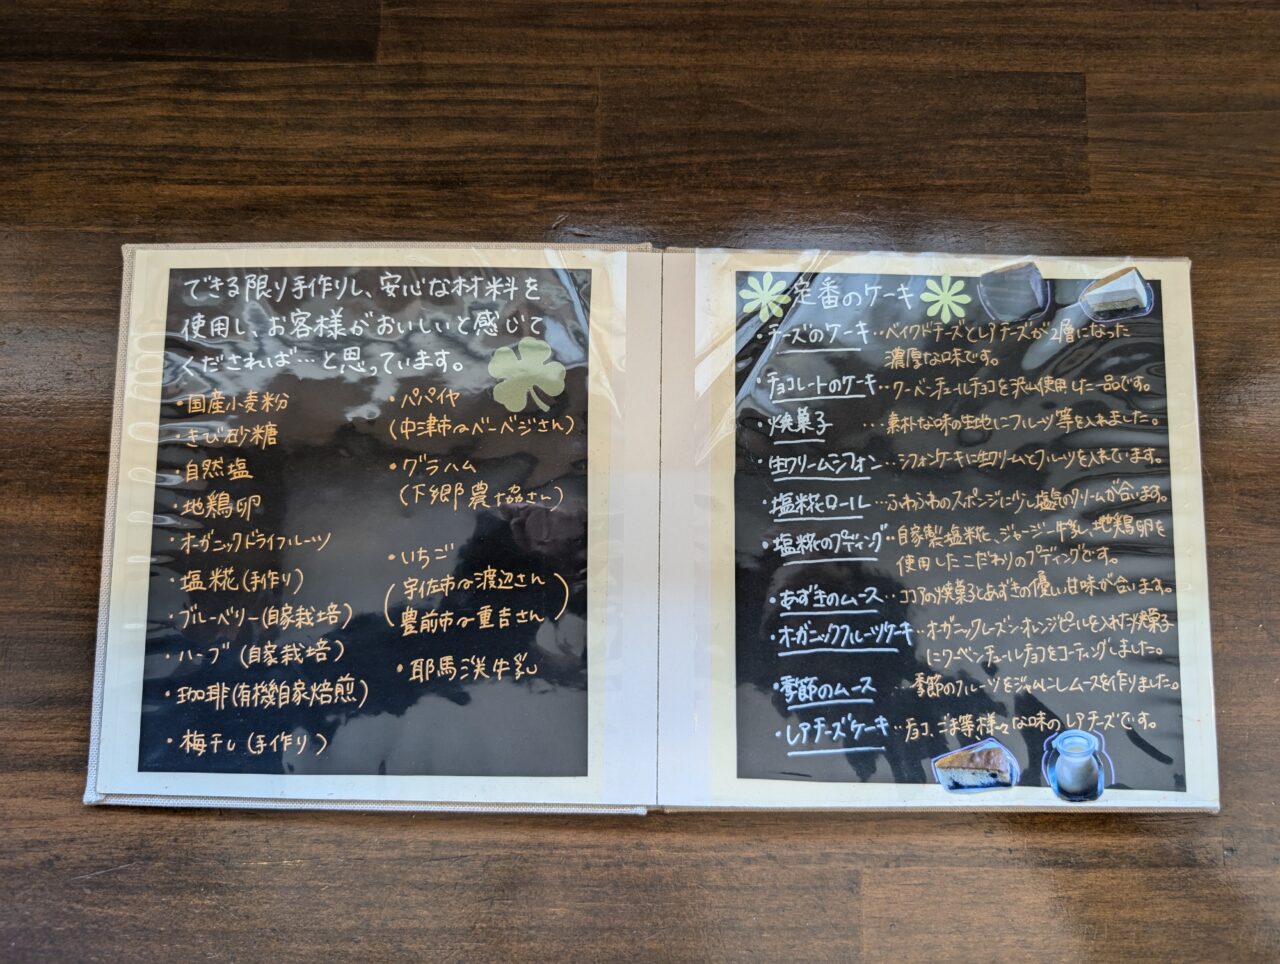 できる限り手作りし、安心な材料を
使用し、お客様がおいしいと感じて
くだされば…と思っています。
・国産小麦粉
・きび砂糖
・自然塩
・地鶏卵
・オーガニックドライフルーツ
・塩糀(手作り)
・ブルーベリー(自家栽培)
・ハーブ(自家栽培)
・珈琲(有機自家焙煎)
・梅干し(手作り)
・パパイヤ
(中津市のベーベジさん)
・グラハム
(下郷農協さん)
・いちご
(宇佐市の渡辺さん
豊前市の重吉さん)
・耶馬渓牛乳
定番のケーキ
・チーズのケーキ…ベイクドチーズとレアチーズが2層になった
濃厚な味です。
・チョコレートのケーキ…クーベンチュールチョコを沢山使用した一品です。
・焼菓子…素朴な味の生地にフルーツ等を入れました。
・生クリームシフォン…シフォンケーキに生クリームとフルーツを入れています。
・塩糀ロール…ふわふわのスポンジに少し塩気のクリームが合います。
・塩糀のプディング…自家製塩糀、ジャージー牛乳、地鶏卵を
使用したこだわりのプディングです。
・あずきのムース…ココアの焼菓子とあずきの優しい甘味が合います。
・オーガニックフルーツケーキ…オーガニックレーズン・オレンジピールを入れた焼菓子
にクーベンチュールチョコをコーティングしました。
・季節のムース…季節のフルーツをジャムにしムースを作りました。
・レアチーズケーキ…チョコ、ごま等様々な味のレアチーズです。